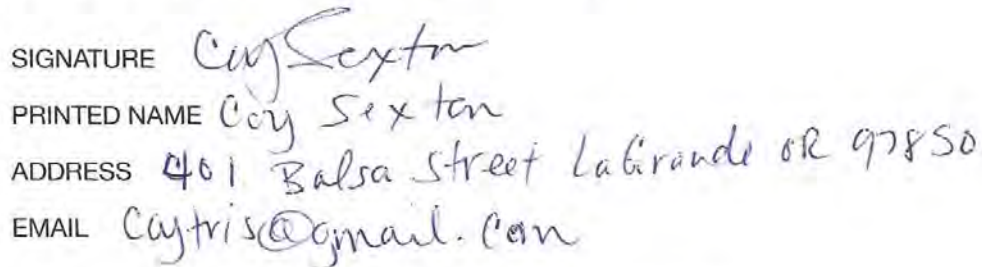 SIGNATURE Coy Sexton
PRINTED NAME Coy Sexton
ADDRESS 401 Balsa Street LaGrande OR 97850
EMAIL Coytris@gmail.com